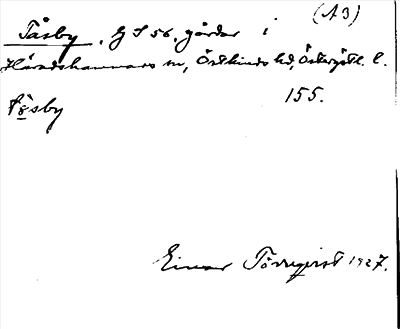 (A3)
Tåsby. G S 56. gårdar i
Häradshammars sn, Östkinds hd, Östergötl. l.
155.
tå̀sby
Einar Törnqvist 1927.